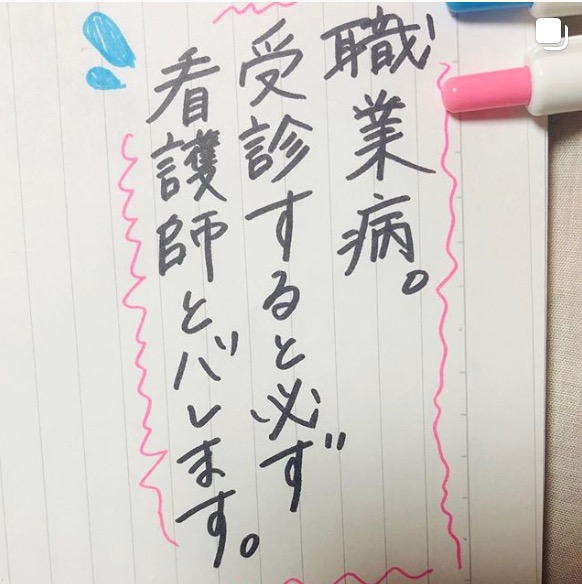 職業病。
受診すると必ず
看護師とバレます。